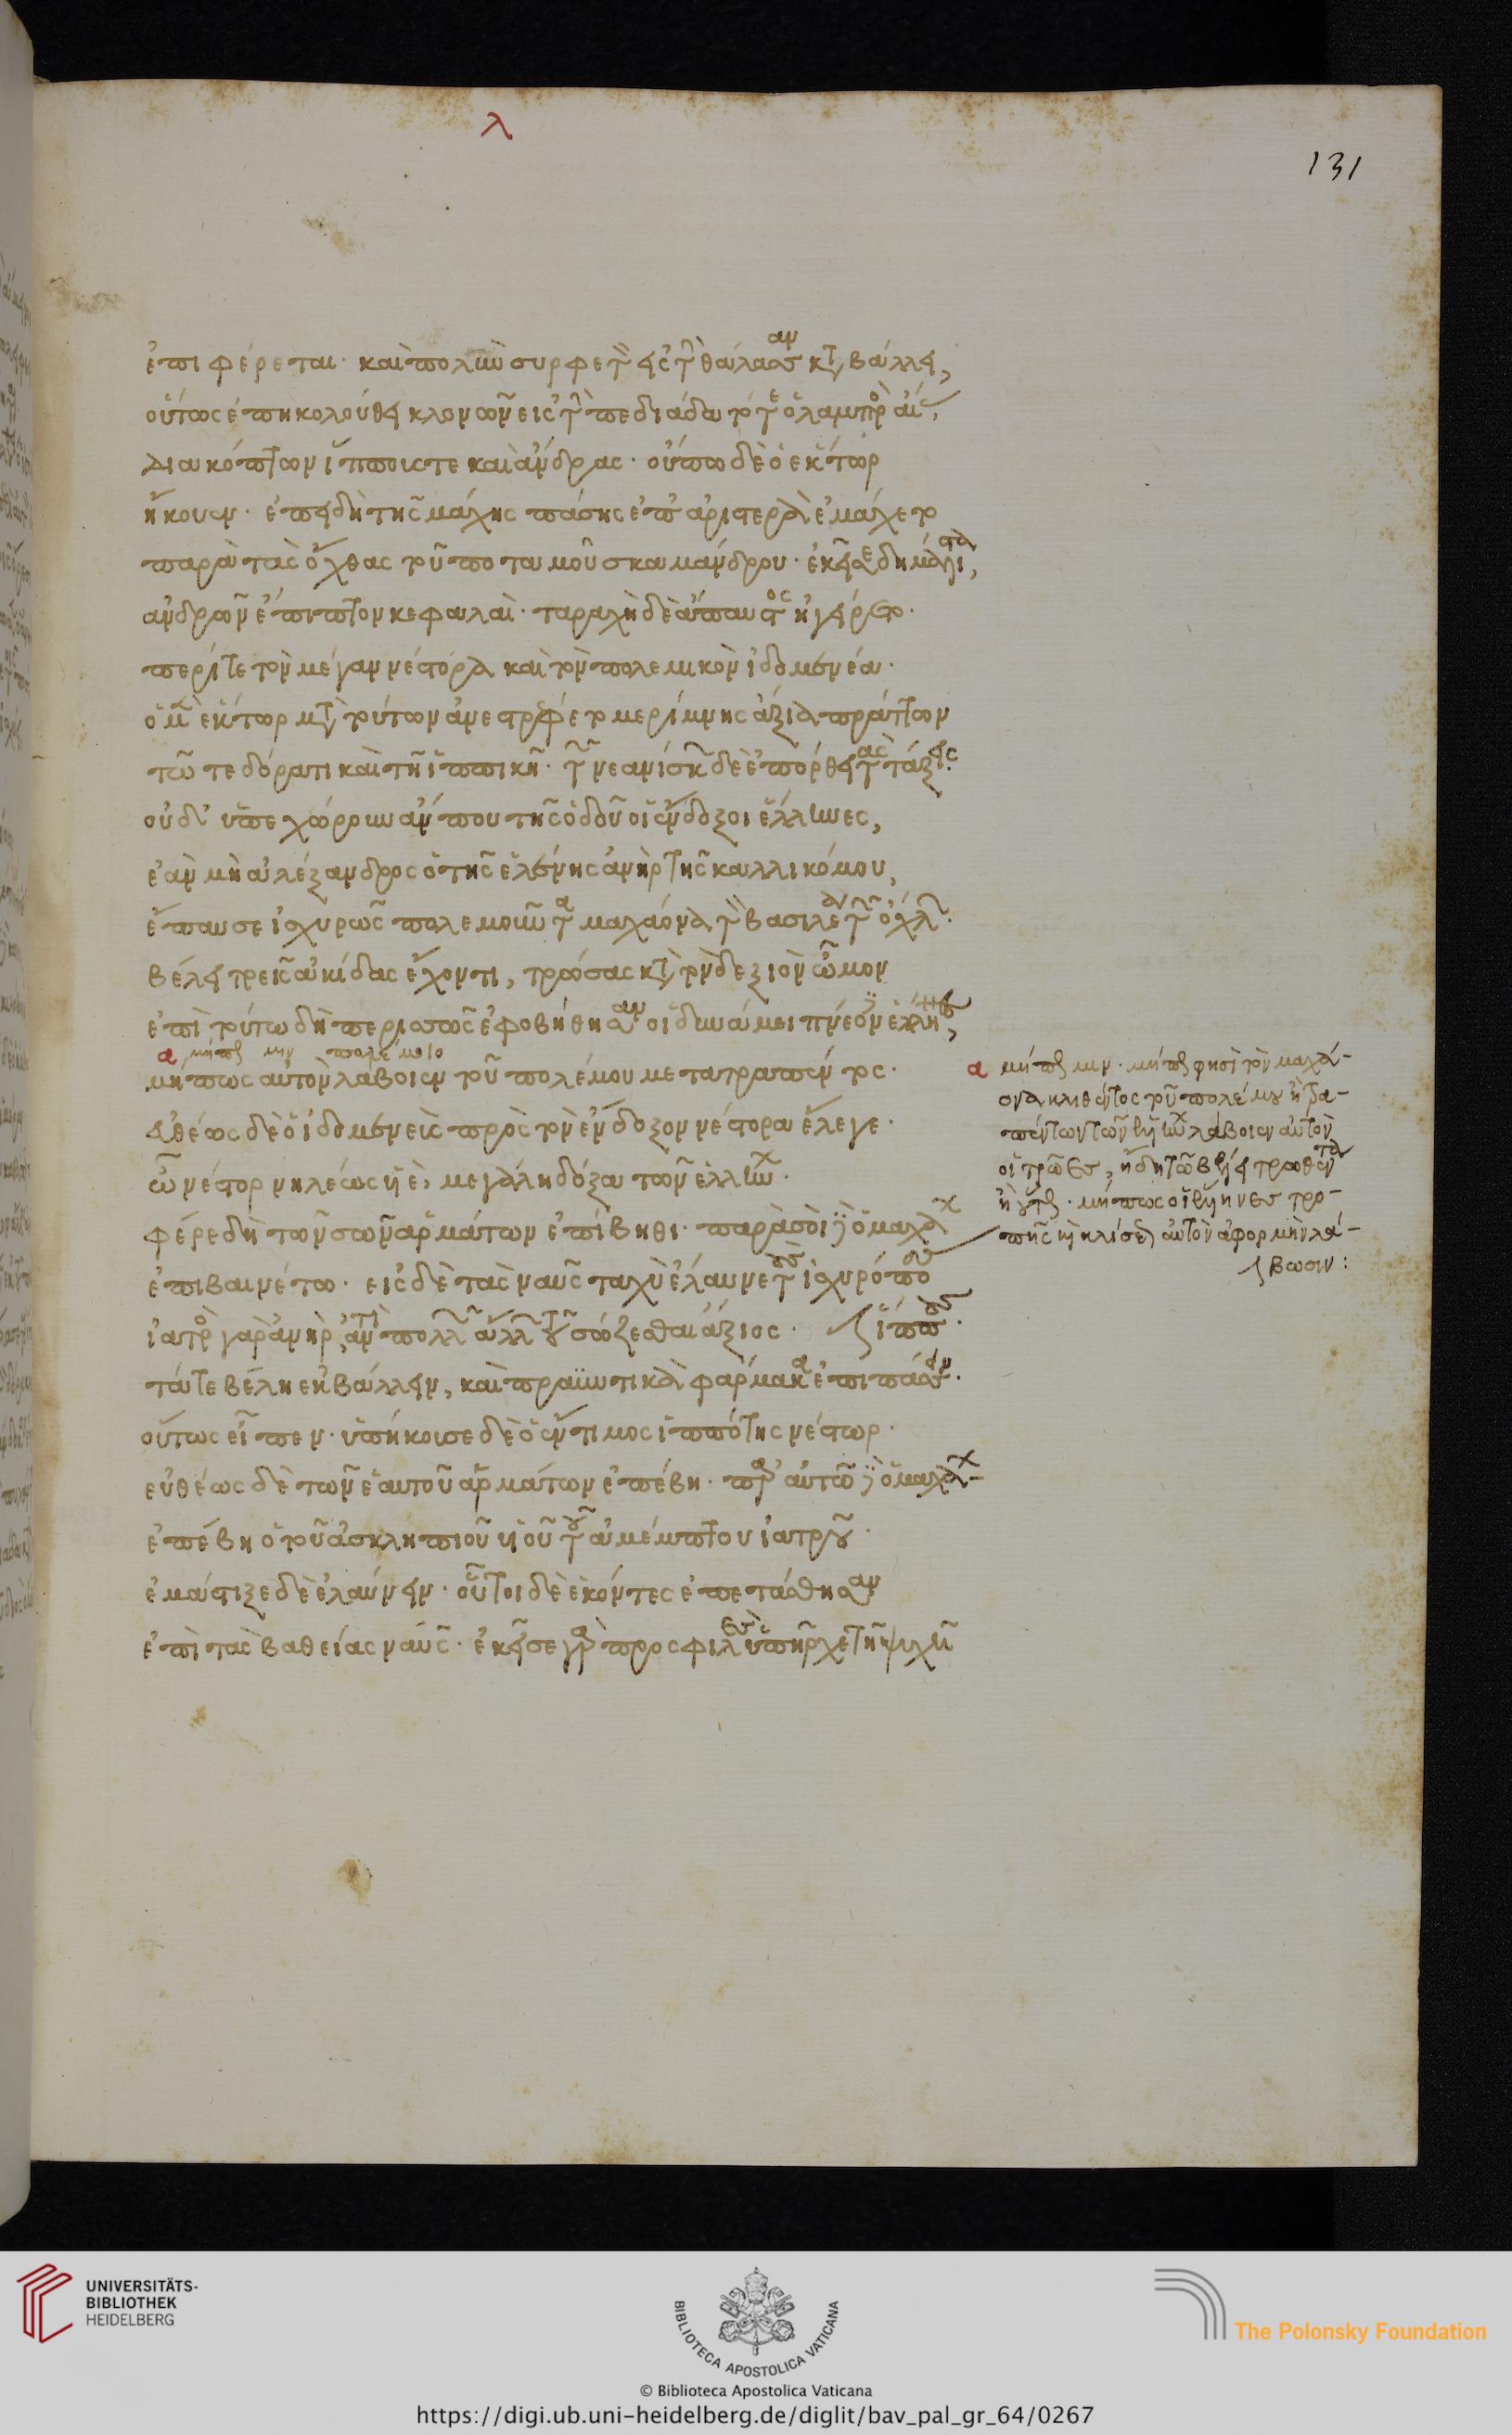 λ
131
ἐπιφέρεται· καὶ πολὺν συρφετὸν εἰς τὴν θάλασσαν καταβάλλει,
οὕτως ἐπηκολούθει κλονῶν εἰς τὴν πεδιάδα τότε ὁ λαμπρὸς αἴας,
διακόπτων ἵππους τε καὶ ἄνδρας· οὔπω δὲ ὁ ἕκτωρ
ἤκουεν· ἐπειδὴ τῆς μάχης πάσης ἐπ' ἀριστερὰ ἐμάχετο
παρὰ τὰς ὄχθας τοῦ ποταμοῦ σκαμάνδρου· ἐκεῖσε δὴ μάλιστα,
ἀνδρῶν ἐπιπτον κεφαλαί· ταραχὴ δὲ ἄπαυστος ἠγείρετο·
περί τε τὸν μέγαν νέστορα καὶ τὸν πολεμικὸν ἰδομενέα·
ὁ μὲν ἕκτωρ μετὰ τούτων ἀνεστρέφετο μερίμνης ἄξια πράττων
τῶ τε δόρατι καὶ τῆ ἱππικῆ· τῶν νεανίσκων δὲ ἐπόρθει τὰς τάξεις·
οὐδ' ὑπεχώρουν ἄν που τῆς ὁδοῦ οἱ ἔνδοξοι ἕλληνες,
ἐὰν μὴ ἀλέξανδρος ὁ τῆς ἑλένης ἀνὴρ τῆς καλλικόμου,
ἔπαυσε ἰσχυρῶς πολεμοῦντα μαχάονα τὸν βασιλέα τῶν ὄχλων·
βέλει τρεῖς ἀκίδας ἔχοντι, τρώσας κατὰ τὸν δεξιὸν ὦμον
ἐπὶ τούτω δὴ περισσῶς ἐφοβήθησαν οἱ δυνάμει πνέοντες ἕλληνες,
α μήπως μιν πολέμοιο
μήπως αὐτὸν λάβοιεν τοῦ πολέμου μετατραπέντος·
εὐθέως δὲ ὁ ἰδομενεὺς πρὸς τὸν ἔνδοξον νέστορα ἔλεγε·
ὦ νέστορ νηλέως υἱὲ, μεγάλη δόξα τῶν ἑλλήνων·
φέρε δὴ τῶν σῶν ἁρμάτων ἐπίβηθι· παρὰ σοὶ δὲ ὁ μαχάων
ἐπιβαινέτω· εἰς δὲ τὰς ναῦς ταχὺ ἐλαύνε τοὺς ἰσχυρόποδας
ἰατρὸς γὰρ ἀνὴρ, ἀντὶ πολλῶν ἄλλων τοῦ σώζεσθαι ἄξιος· ἵππους·
τά τε βέλη ἐκβάλλειν, καὶ πραϋντικὰ φάρμακα ἐπιπάσσειν·
οὕτως εἶπεν· ὑπήκουσε δὲ ὁ ἔντιμος ἱππότης νέστωρ·
εὐθέως δὲ τῶν ἑαυτοῦ ἁρμάτων ἐπέβη· παρ' αὐτῶ δὲ ὁ μαχάων
ἐπέβη ὁ τοῦ ἀσκληπιοῦ υἱοῦ τοῦ ἀμέμπτου ἰατροῦ·
ἐμάστιξε δὲ ἐλαύνειν· οὗτοι δὲ ἑκόντες ἐπετάσθησαν
ἐπὶ τὰς βαθείας ναῦς· ἐκεῖσε γὰρ προσφιλὲς ὑπῆρχε τῆ ψυχῆ
α μήπως μιν· μήπως φησὶ τὸν μαχά-
ονα κλιθέντος τοῦ πολέμου ἢ τρα-
πέντων τῶν ἑλλήνων λάβοιεν αὐτὸν
οἱ τρῶες, ἤδη τῶ βέλει τρωθέντα
ἢ οὕτως· μήπως οἱ ἕλληνες τρο-
πῆς καὶ κλίσεως αὐτὸν ἀφορμὴν λά-
βωσιν:
UNIVERSITÄTS-
BIBLIOTHEK
HEIDELBERG
BIBLIOTECA APOSTOLICA VATICANA
The Polonsky Foundation
© Biblioteca Apostolica Vaticana
https://digi.ub.uni-heidelberg.de/diglit/bav_pal_gr_64/0267